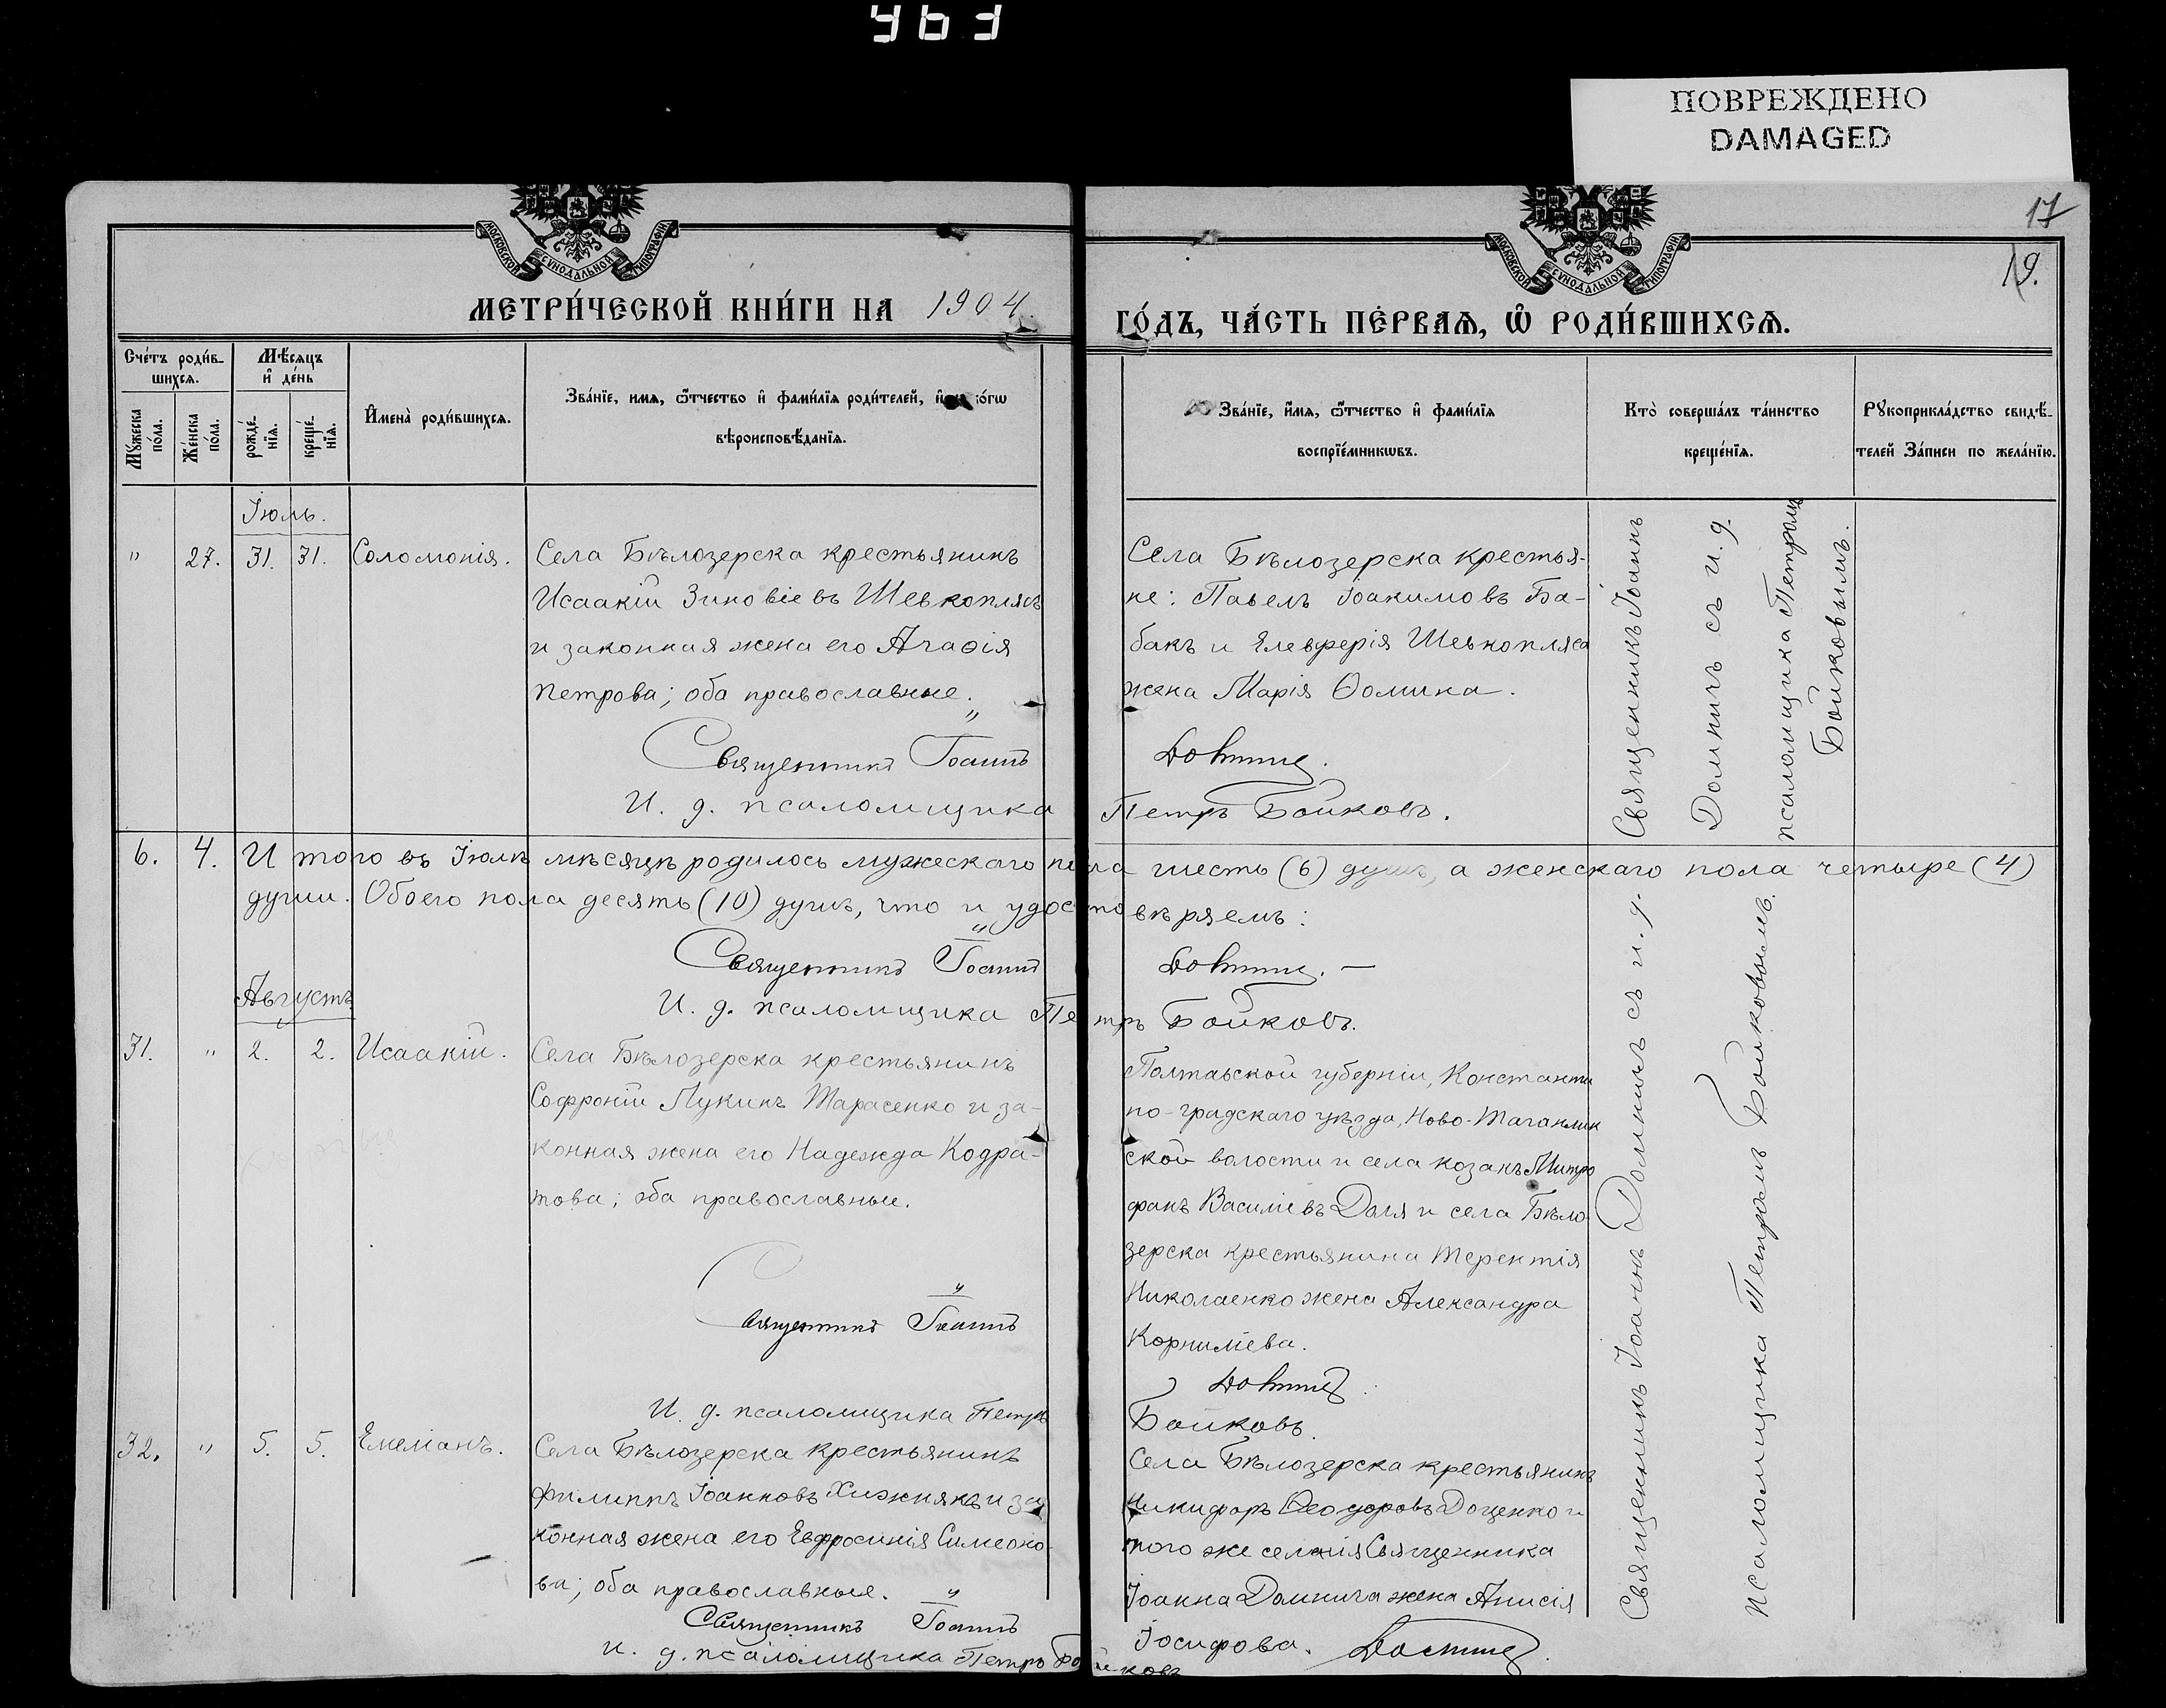 463
ПОВРЕЖДЕНО
DAMAGED
17
19.
МОСКОВСКОЙ СѴНОДАЛЬНОЙ ТИПОГРАФІИ
МОСКОВСКОЙ СѴНОДАЛЬНОЙ ТИПОГРАФІИ
МЕТРИ́ЧЕСКОЙ КНИ́ГИ НА 1904.
ГО́ДЪ, ЧА́СТЬ ПЕ́РВАѦ, Ѡ҆ РОДИ́ВШИХСѦ.
Сче́тъ роди́в-
шихсѧ.
Мꙋ́жеска
по́ла.
Же́нска
по́ла.
Мѣ́сѧцъ
и҆ де́нь
рожде́-
нїѧ.
креще́-
нїѧ.
И҆мена̀ роди́вшихсѧ.
Зва́нїе, имѧ, ѻ҆́тчество и҆ фами́лїѧ роди́телей, и҆
вѣроисповѣ́данїѧ.
Зва́нїе, и҆́мѧ, ѻ҆́тчество и҆ фами́лїѧ
воспрїе́мникѡвъ.
Кто̀ соверша́лъ та́инство
креще́нїѧ.
Рꙋкоприкла́дство свидѣ́-
телей За́писи по жела́нїю.
Іюль.
" 27. 31. 31. Соломонія.
Села Бѣлозерска крестьянинъ
Исаакій Зиновіевъ Шевкоплясъ
и законная жена его Агаѳія
Петрова; оба православные.
Священникъ Іоаннъ
И. д. псаломщика
Села Бѣлозерска крестья-
не: Павелъ Іоакимовъ Ба-
бакъ и Елевферія Шевкопляса
жена Марія Ѳомина.
Домничъ.
Петръ Бойковъ.
Священникъ Іоаннъ
Домничъ съ и. д.
псаломщика Петромъ
Бойковымъ.
6. 4. И того въ Іюлѣ мѣсяцѣ родилось мужескаго пола шесть (6) душъ, а женскаго пола четыре (4)
души. Обоего пола десять (10) душъ, что и удостовѣряемъ:
Священникъ Іоаннъ Домничъ. —
И. д. псаломщика Петръ Бойковъ.
Августъ
31. " 2. 2. Исаакій.
Села Бѣлозерска крестьянинъ
Софроній Лукинъ Тарасенко и за-
конная жена его Надежда Кодра-
това; оба православные.
Священникъ Іоаннъ
И. д. псаломщика Петръ
Полтавской губерніи, Константи
но-градскаго уѣзда, Ново-Тагамлик
ской волости и села козакъ Митро
фанъ Василіевъ Доля и села Бѣло-
зерска крестьянина Терентія
Николаенко жена Александра
Корниліева.
Домничъ.
Бойковъ.
Священникъ Іоаннъ Домничъ съ и. д.
псаломщика Петромъ Бойковымъ.
32. " 5. 5. Емеліанъ.
Села Бѣлозерска крестьянинъ
Филиппъ Іоанновъ Хижнякъ и за
конная жена его Евфросинія Симеоно-
ва; оба православные.
Священникъ Іоаннъ
И. д. псаломщика Петръ Бойковъ
Села Бѣлозерска крестьянинъ
Никифоръ Ѳеодоровъ Доценко и
того же селенія Священника
Іоанна Домнича жена Анисія
Іосифова. Домничъ.